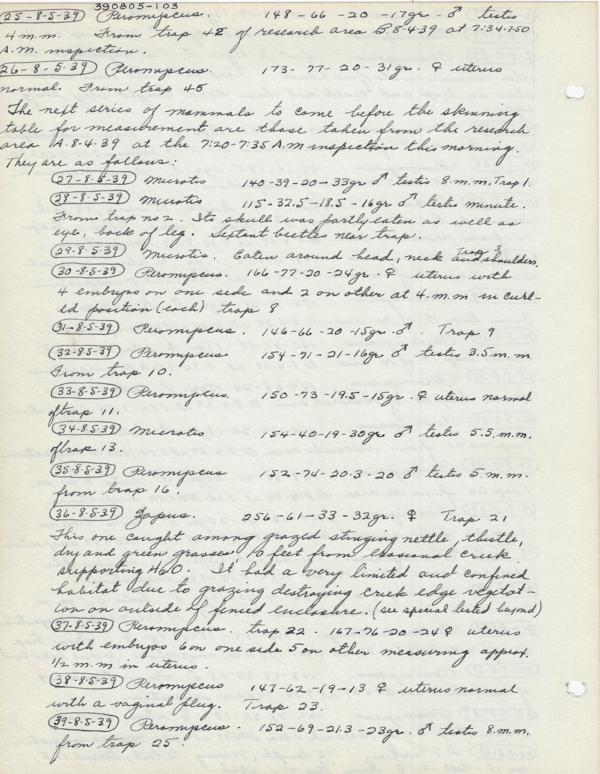 390805-103
(25-8-5-39) Peromyscus. 148-66-20-17gr. ♂ testis
4 m.m. From trap 42 of research area B 8-4-39 at 7:34-7:50
A.M. inspection.
(26-8-5-39) Peromyscus. 173-77-20-31gr. ♀ uterus
normal. From trap 45
The next series of mammals to come before the skinning
table for measurement are those taken from the research
area A.8-4.39 at the 7:20-7:35 A.M inspection this morning.
They are as follows:
(27-8-5-39) Microtis 140-39-20-33gr ♂ testis 8.m.m. Trap 1.
(28-8-5-39) Microtis 115-32.5-18.5-16gr ♂ testis minute.
From trap no 2. Its skull was partly eaten as well as
eye, back of leg. Sextant beetles near trap.
(29-8-5-39) Microtis. Eaten around head, neck and shoulders. Trap 3
(30-8-5-39) Peromyscus. 166-77-20-24gr. ♀ uterus with
4 embryos on one side and 2 on other at 4.m.m in curl-
ed position (each) trap 8
(31-8-5-39) Peromyscus. 146-66-20-15gr. ♂. Trap 9
(32-8-5-39) Peromyscus 154-71-21-16gr ♂ testis 3.5 m.m
From trap 10.
(33-8-5-39) Peromyscus. 150-73-19.5-15gr. ♀ uterus normal
of trap 11.
(34-8-5-39) Microtis 154-40-19-30gr ♂ testis 5.5 m.m.
of trap 13.
(35-8-5-39) Peromyscus 152-74-20.3-20 ♂ testis 5.m.m.
from trap 16.
(36-8-5-39) Zapus. 256-61-33-32gr. ♀ Trap 21
This one caught among grazed stinging nettle, thistle,
dry and green grasses 10 feet from creek
supporting H2O. It had a very limited and confined
habitat due to grazing destroying creek edge vegetat-
ion on outside of fenced enclosure. (see special listed beyond)
(37-8-5-39) Peromyscus. trap 22. 167-76-20-24 ♀ uterus
with embryos 6 on one side 5 on other measuring approx.
1/2 m.m in uterus.
(38-8-5-39) Peromyscus 147-62-19-13 ♀ uterus normal
with a vaginal plug. Trap 23.
(39-8-5-39) Peromyscus. 152-69-21.3-23gr. ♂ testis 8.m.m.
from trap 25.